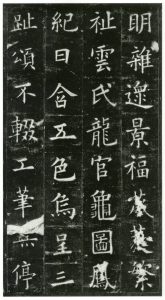 明雜遝景福葳蕤繁
祉雲氏龍官龜圖鳳
紀日含五色烏呈三
趾頌不輟工筆無停